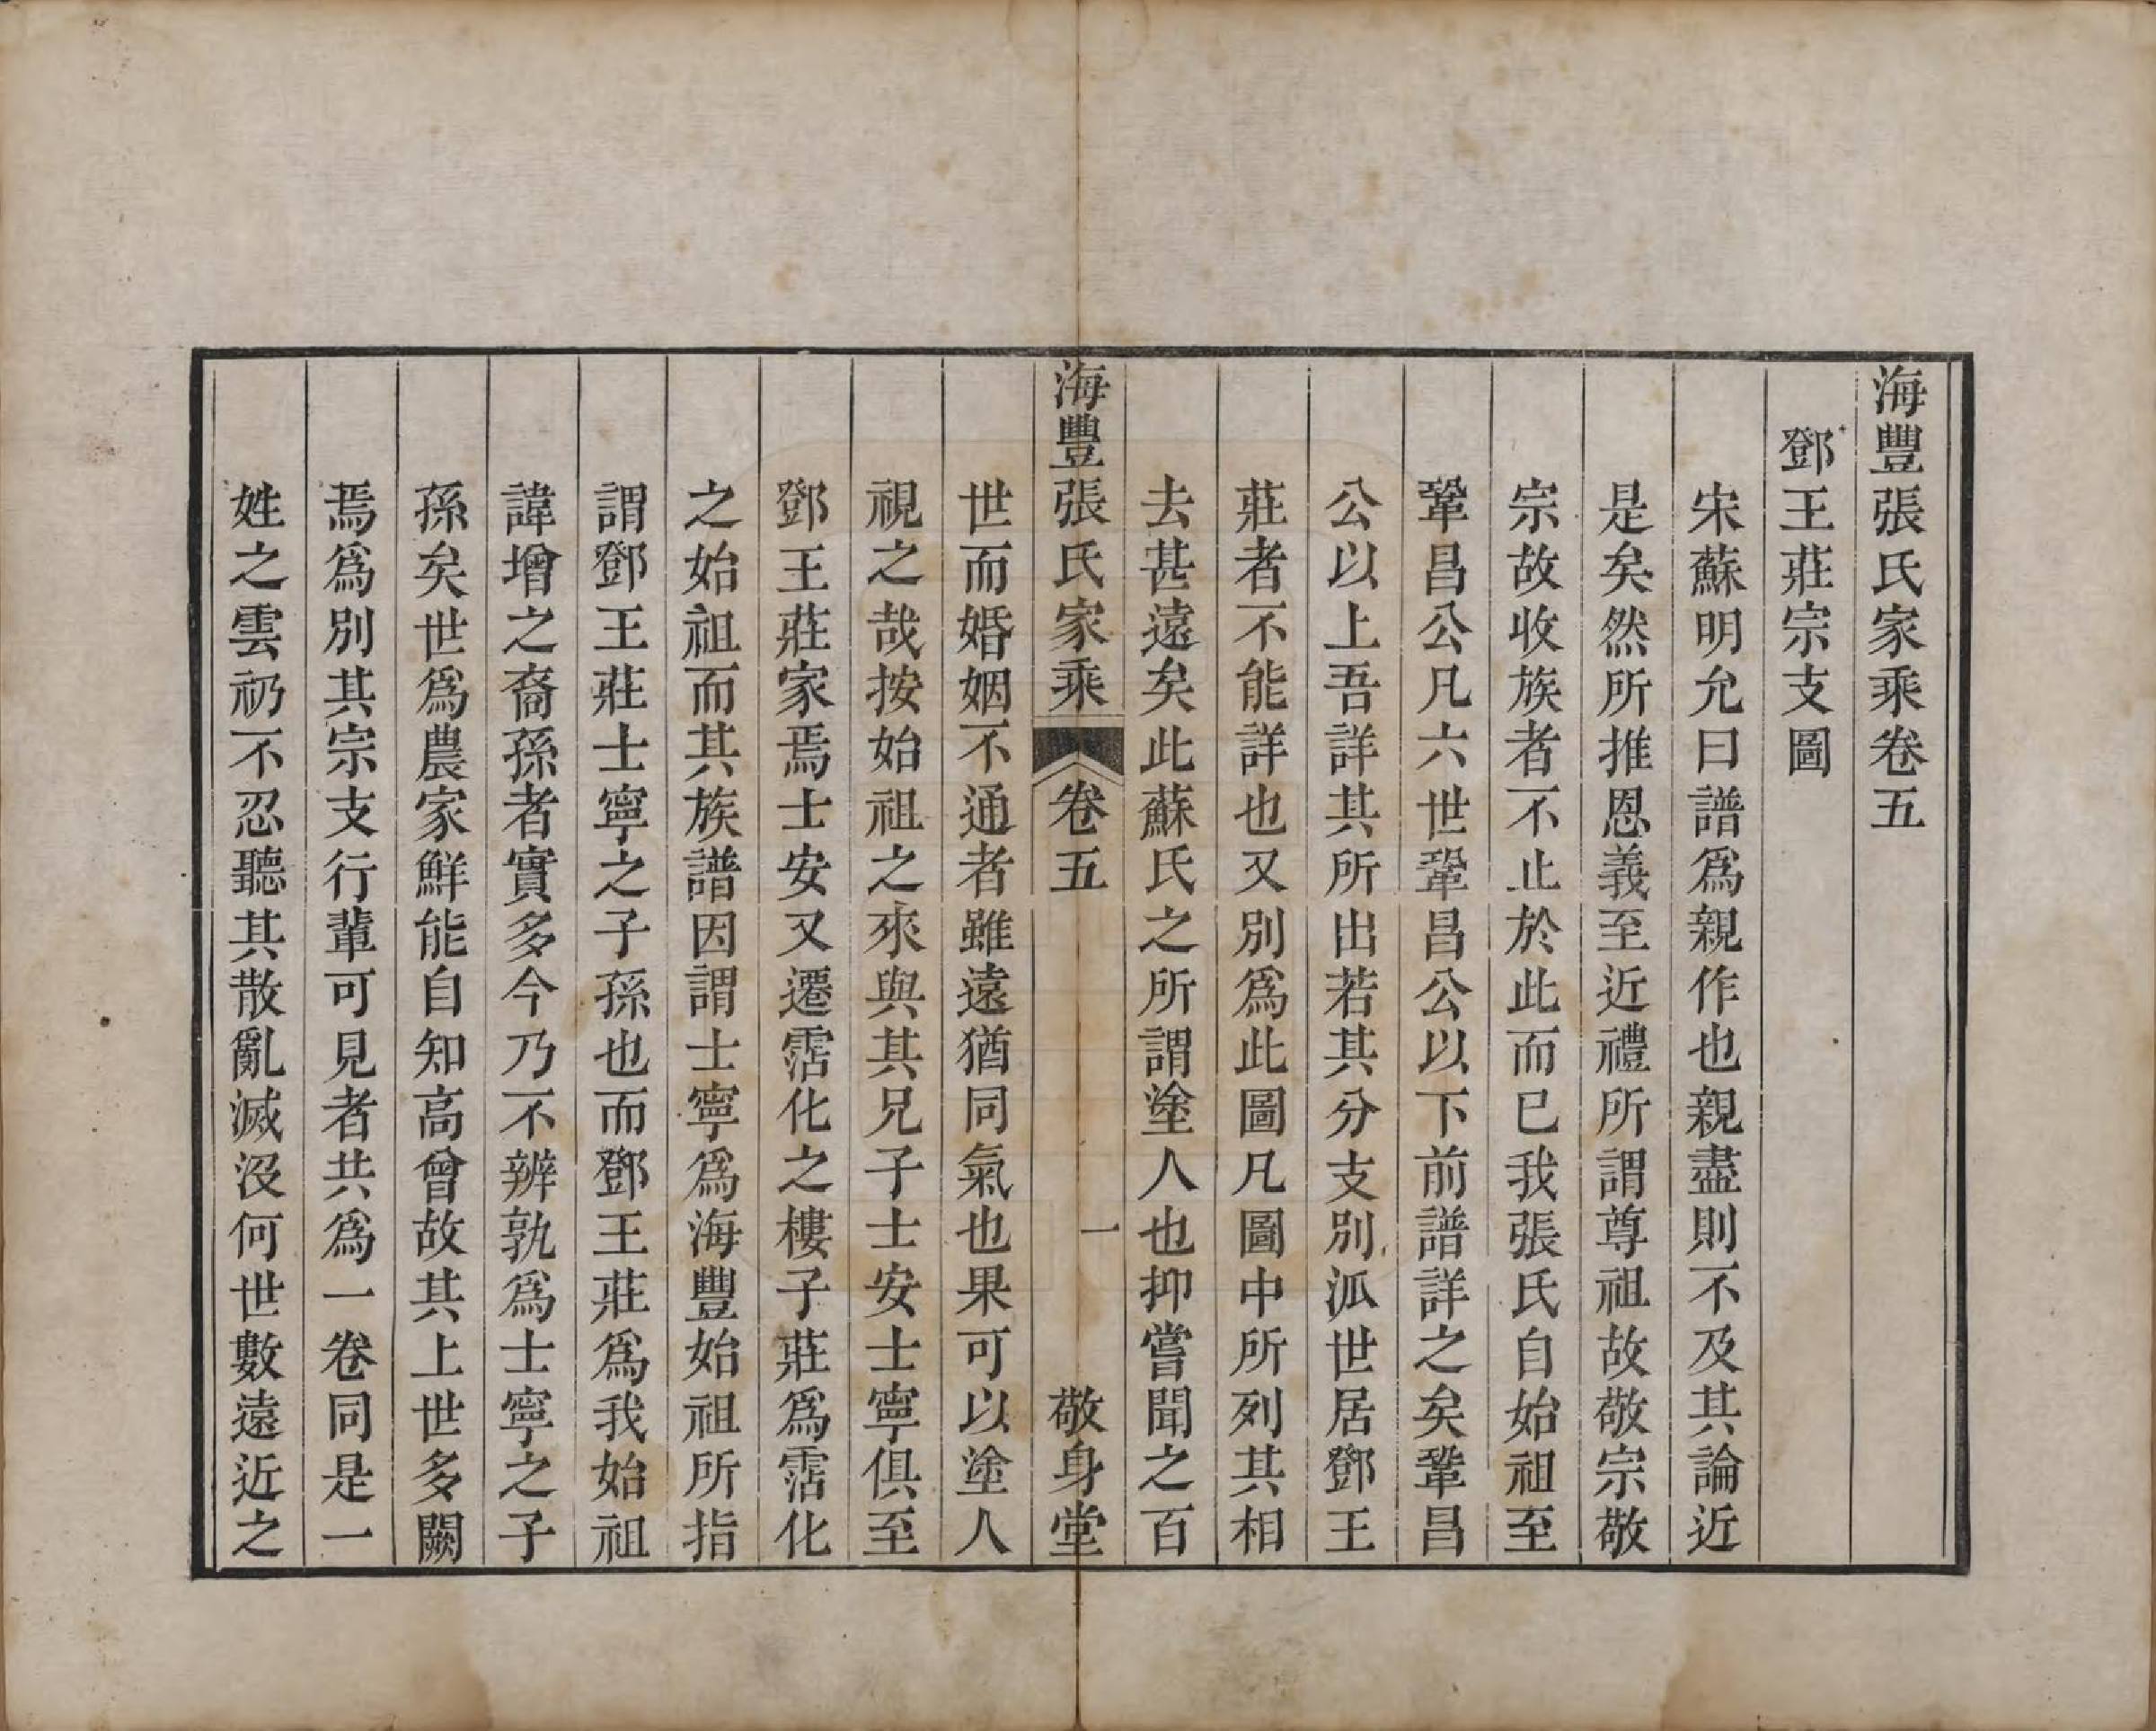 海豐張氏家乘卷五
鄧王莊宗支圖
宋蘇明允曰譜爲親作也親盡則不及其論近
是矣然所推恩義至近禮所謂尊祖故敬宗敬
宗故收族者不止於此而已我張氏自始祖至
鞏昌公凡六世鞏昌公以下前譜詳之矣鞏昌
公以上吾詳其所出若其分支別派世居鄧王
莊者不能詳也又別爲此圖凡圖中所列其相
去甚遠矣此蘇氏之所謂塗人也抑嘗聞之百
海豐張氏家乘 卷五 一 敬身堂
世而婚姻不通者雖遠猶同氣也果可以塗人
視之哉按始祖之來與其兄子士安士寧俱至
鄧王莊家焉士安又遷霑化之樓子莊爲霑化
之始祖而其族譜因謂士寧爲海豐始祖所指
謂鄧王莊士寧之子孫也而鄧王莊爲我始祖
諱增之裔孫者實多今乃不辨孰爲士寧之子
孫矣世爲農家鮮能自知高曾故其上世多闕
焉爲別其宗支行輩可見者共爲一卷同是一
姓之雲礽不忍聽其散亂滅沒何世數遠近之